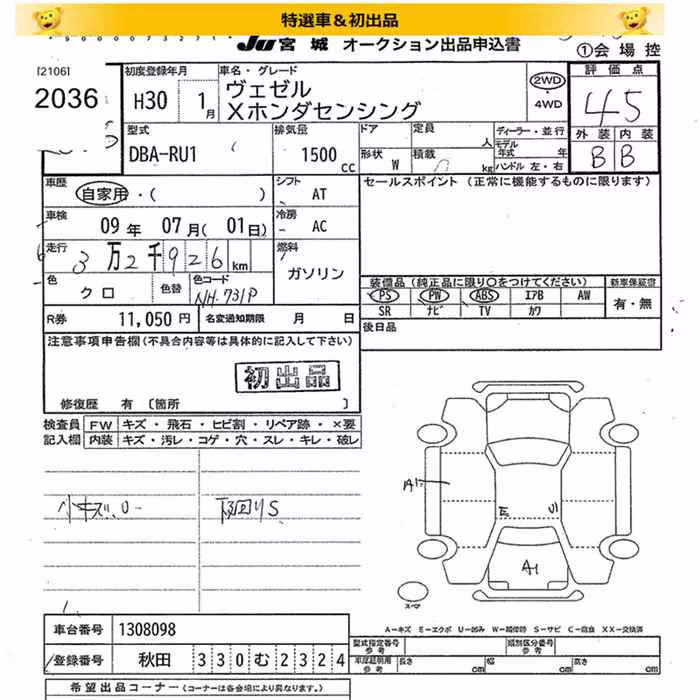 特選車＆初出品
JU宮城 オークション出品申込書
①会場控
[2106]
2036
初度登録年月
H30 1月
車名・グレード
ヴェゼル
Xホンダセンシング
2WD
・
4WD
評価点
4.5
外装 内装
B B
型式
DBA-RU1
排気量
1500 CC
ドア
定員 人
形状 W
積載 kg
ディーラー・並行
モデル年式 年
ハンドル 左・右
車歴
自家用・( )
シフト
AT
セールスポイント (正常に機能するものに限ります)
車検
09年 07月(01日)
冷房
AC
走行
3万2千926km
燃料
ガソリン
色
クロ
色替
色コード
NH-731P
装備品 (純正品に限り○をつけてください)
新車保証書
PS PW ABS エアB AW
SR ナビ TV カワ
有・無
R券 11,050円
名変通知期限 月 日
後日品
注意事項申告欄(不具合内容等は具体的に記入して下さい)
初出品
修復歴 有 〔箇所 〕
検査員記入欄
FW キズ・飛石・ヒビ割・リペア跡・×要
内装 キズ・汚レ・コゲ・穴・スレ・キレ・破レ
小キズ、U
下回りS
A1
E
U1
A1
スペア
A-キズ E-エクボ U-凹み W-補修跡 S-サビ C-腐食 XX-交換済
車台番号 1308098
登録番号 秋田 330む2324
型式指定番号 参考
類別区分番号 参考
車庫証明用 参考 長さ cm 幅 cm 高さ cm
希望出品コーナー (コーナーは各会場により異なります。)